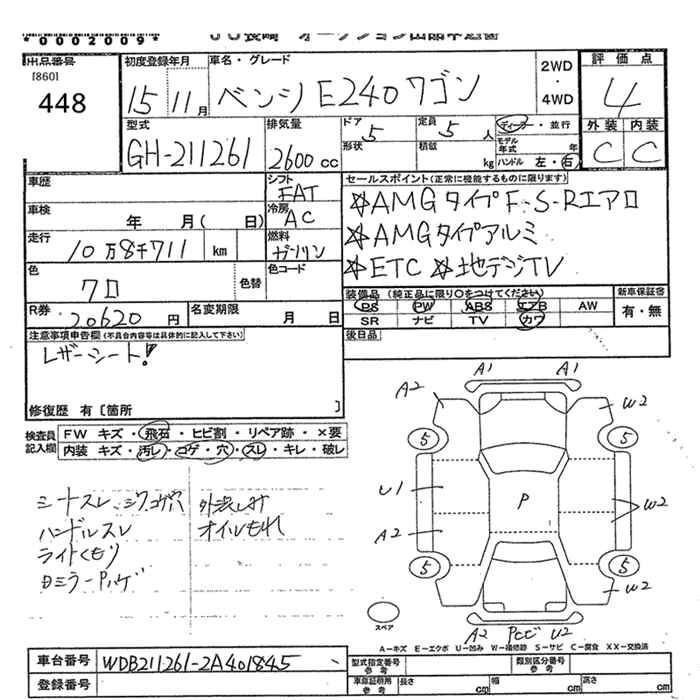 *0002009*
JU長崎 オークション出品申込書
出品番号
[860]
448
初度登録年月
15 11月
車名・グレード
ベンツ E240 ワゴン
2WD
・
4WD
評価点
4
外装 内装
C C
型式
GH-211261
排気量
2600cc
ドア
5
定員
5人
形状
積載
kg
ディーラー・並行
モデル年式 年
ハンドル 左・右
車歴
シフト
FAT
セールスポイント(正常に機能するものに限ります)
☆AMGタイプF-S-Rエアロ
☆AMGタイプアルミ
☆ETC ☆地デジTV
車検
年 月( 日)
冷房
AC
走行
10万8千711 km
燃料
ガソリン
色
クロ
色替
色コード
装備品(純正品に限り○をつけてください)
PS PW ABS エアB AW
SR ナビ TV カワ
新車保証書
有・無
R券
20620円
名変期限
月 日
後日品
注意事項申告欄(不具合内容等は具体的に記入して下さい)
レザーシート!
修復歴 有〔箇所 〕
検査員
記入欄
FW キズ・飛石・ヒビ割・リペア跡・×要
内装 キズ・汚レ・コゲ・穴・スレ・キレ・破レ
シートスレ、シワ、コゲ穴
ハンドルスレ
ライトくもり
Bミラーハゲ
外装しみ
オイルもれ
A1 A1
A2 W2
5 5
U1 P W2
A2
5 5
W2
A2 Pcビ U2
スペア
A－キズ E－エクボ U－凹み W－補修跡 S－サビ C－腐食 XX－交換済
車台番号
WDB211261-2A401845
登録番号
型式指定番号
参考
類別区分番号
参考
車庫証明用
参考
長さ cm
幅 cm
高さ cm